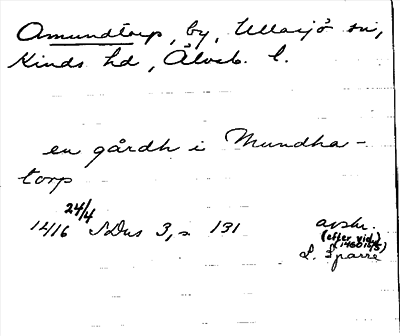 Amundtorp, by, Ullasjö sn,
Kinds hd, Älvsb. l.
en gårdh i Mundha-
torp
24/4
1416 SDns 3, s 131 avskr.
(efter vid.
L. Sparre